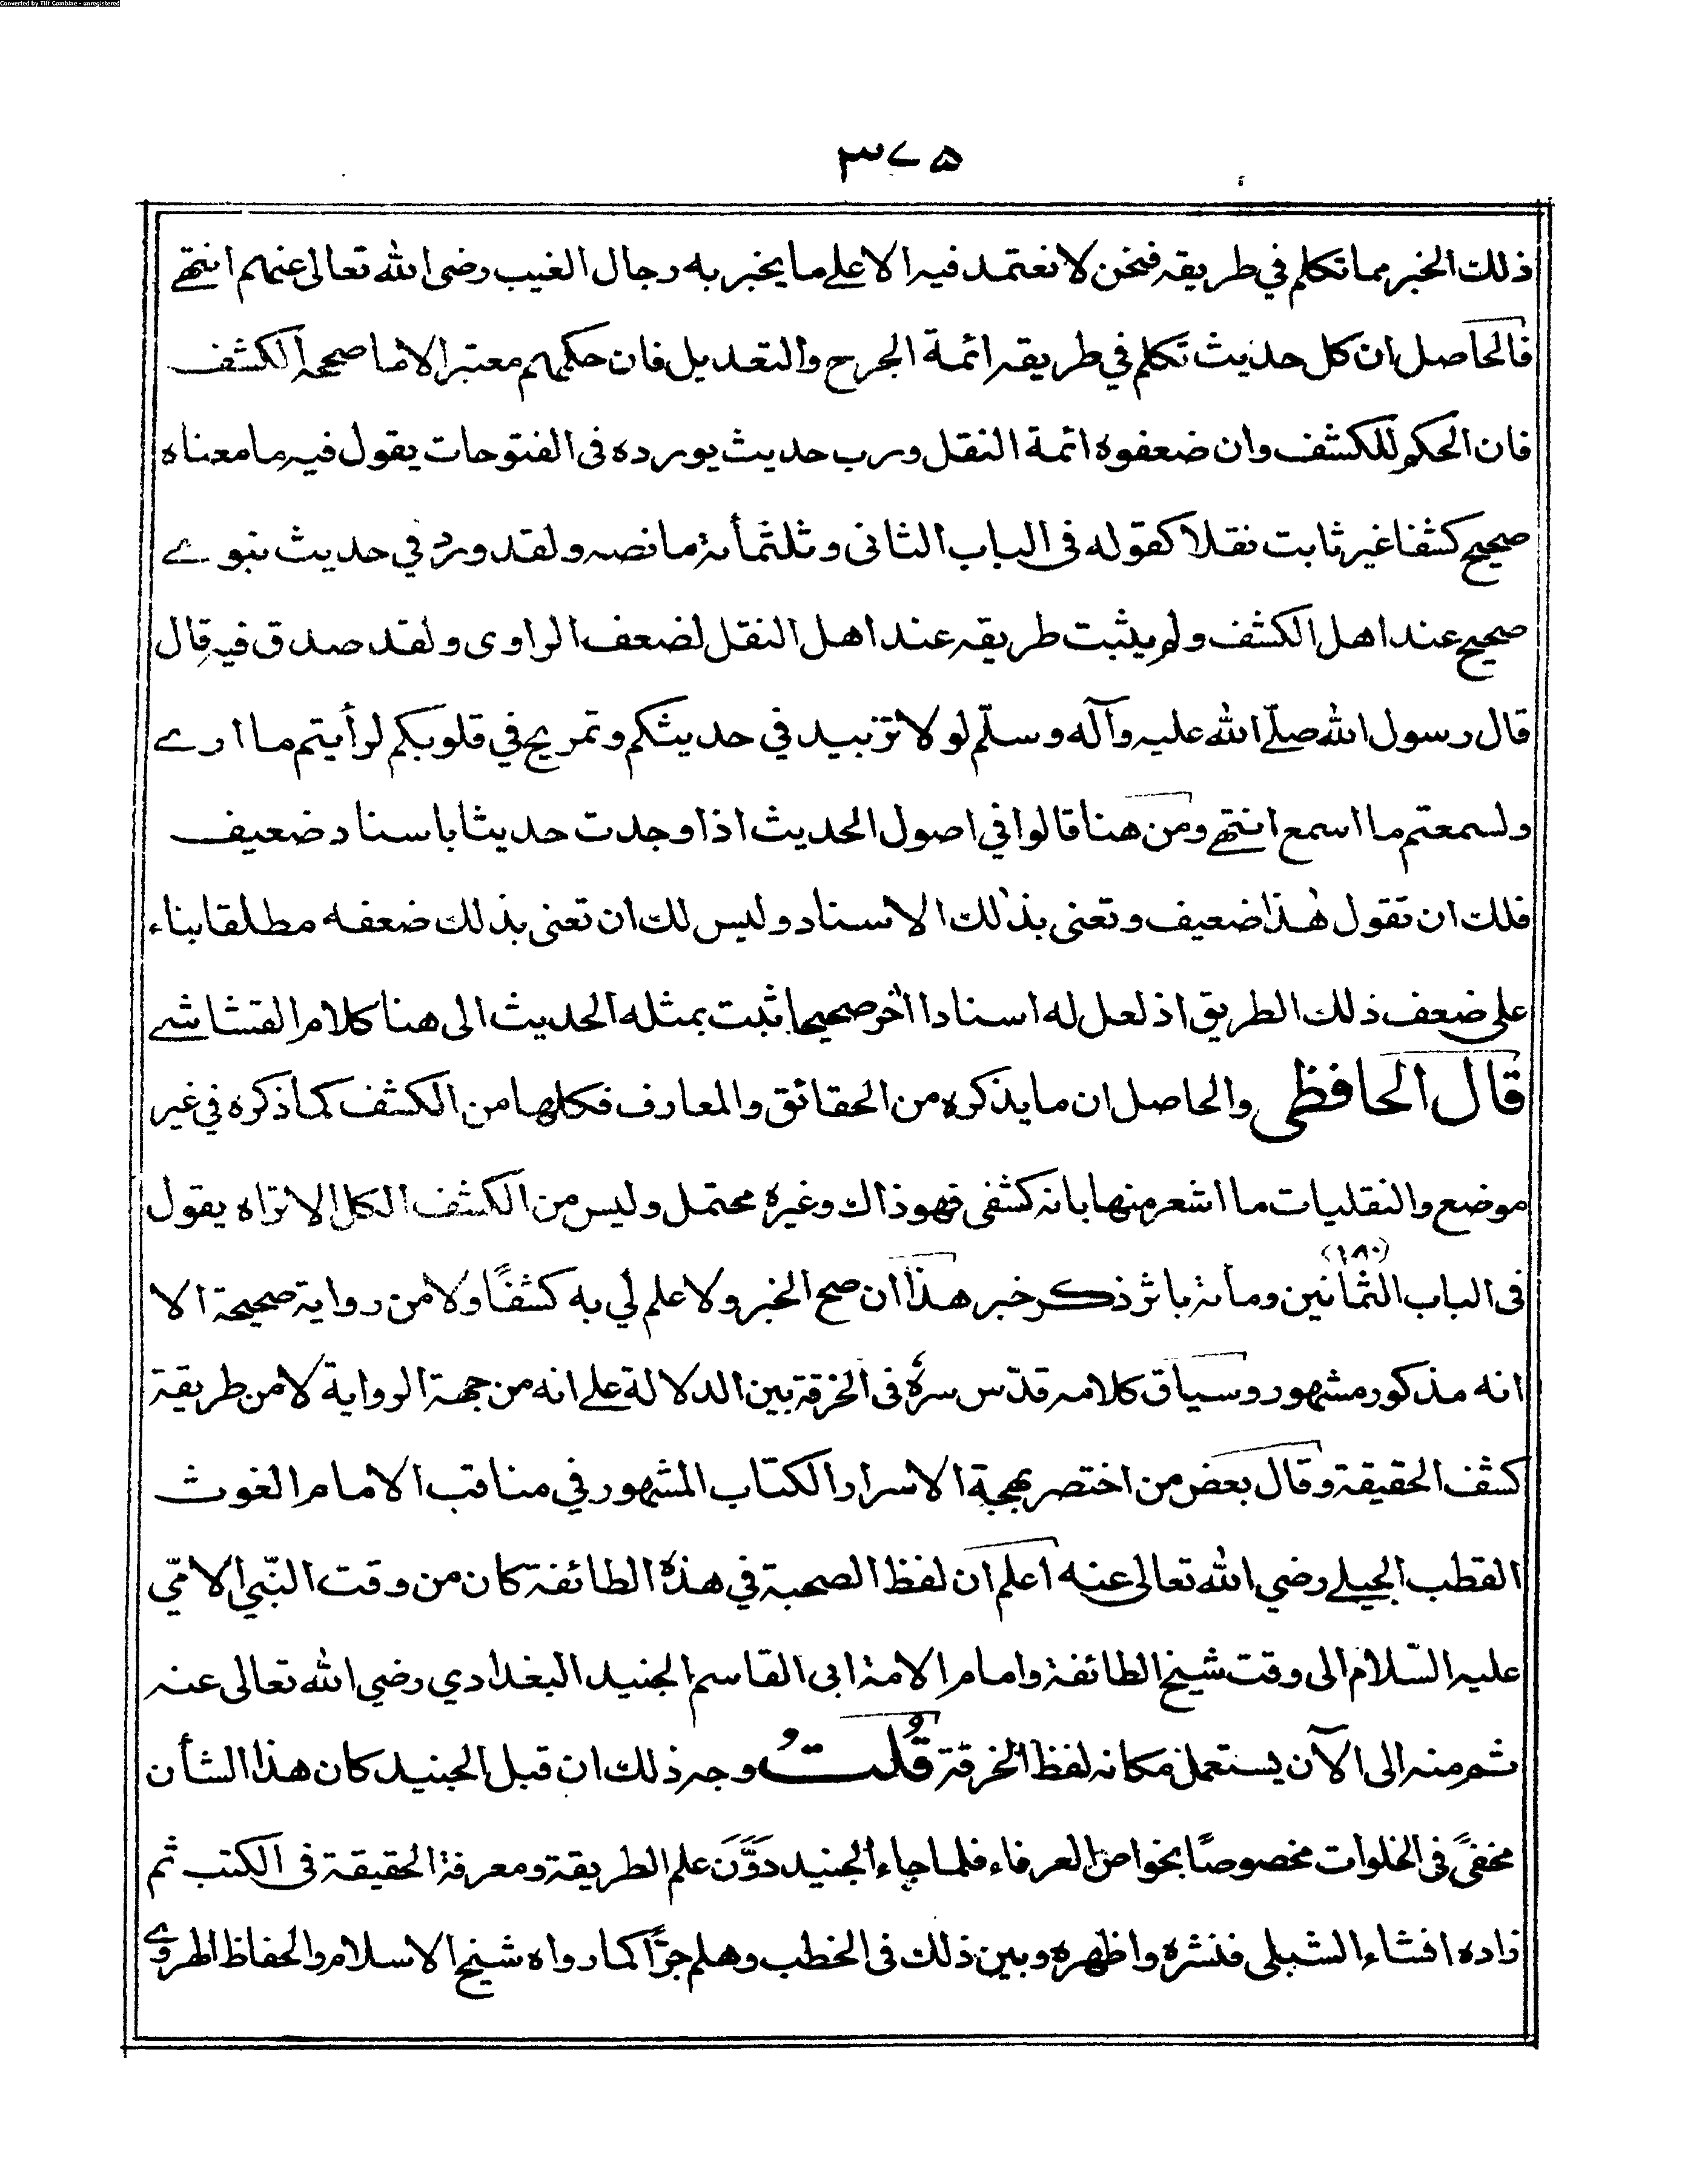 Converted by Tiff Combine - unregistered
٣٧٥
ذلك الخبر مما تكلم في طريقه فنحن لا نعتمد فيه الا على ما يخبر به رجال الغيب رضى الله تعالى عنهم انتهى
فالحاصل ان كل حديث تكلم في طريقه ائمة الجرح والتعديل فان حكمهم معتبر الا ما صححه الكشف
فان الحكم للكشف وان ضعفوه ائمة النقل ورب حديث يورده فى الفتوحات يقول فيه ما معناه
صحيح كشفا غير ثابت نقلا كقوله فى الباب الثانى وثلثمأته ما نصه ولقد ورد في حديث نبوے
صحيح عند اهل الكشف ولم يثبت طريقه عند اهل النقل لضعف الراوى ولقد صدق فيه قال
قال رسول الله صلّى الله عليه وآله وسلّم لو لا تزييد في حديثكم وتمريج في قلوبكم لرأيتم ما ارے
ولسمعتم ما اسمع انتهى ومن هنا قالوا في اصول الحديث اذا وجدت حديثا باسناد ضعيف
فلك ان تقول هٰذا ضعيف وتعنى بذٰلك الاسناد وليس لك ان تعنى بذلك ضعفه مطلقا بناء
على ضعف ذلك الطريق اذ لعل له اسنادا اٰخر صحيحا ثبت بمثله الحديث الى هنا كلام القشاشے
قال الحافظى والحاصل ان ما يذكره من الحقائق والمعارف فكلها من الكشف كما ذكره في غير
موضع والنقليات ما اشعر منها بانه كشفى فهو ذاك وغيره محتمل وليس من الكشف الكل الا تراه يقول
(١٨٠)
فى الباب الثمانين ومأته باثر ذكر خبر هذا ان صح الخبر ولا علم لي به كشفًا ولا من رواية صحيحة الا
انه مذكور مشهور وسياق كلامه قدّس سرهٗ فى الخرقة بين الدلالة على انه من جهة الرواية لا من طريقة
كشف الحقيقة وقال بعض من اختصر بهجة الاسرار الكتاب المشهور في مناقب الامام الغوث
القطب الجيلے رضي الله تعالى عنه اعلم ان لفظ الصحبة في هذه الطائفة كان من وقت النّبي الامّي
عليه السّلام الى وقت شيخ الطائفة وامام الامة ابى القاسم الجنيد البغدادي رضي الله تعالى عنه
ثم منه الى الآن يستعمل مكانه لفظ الخرقة قُلتُ وجه ذلك ان قبل الجنيد كان هذا الشأن
مخفىً فى الخلوات مخصوصًا بخواص العرفاء فلما جاء الجنيد دوَّنَ علم الطريقة ومعرفة الحقيقة فى الكتب ثم
زاده افشاء الشبلى فنشره واظهره وبين ذلك فى الخطب وهلم جرًّا كما رواه شيخ الاسلام والحفاظ الهروے